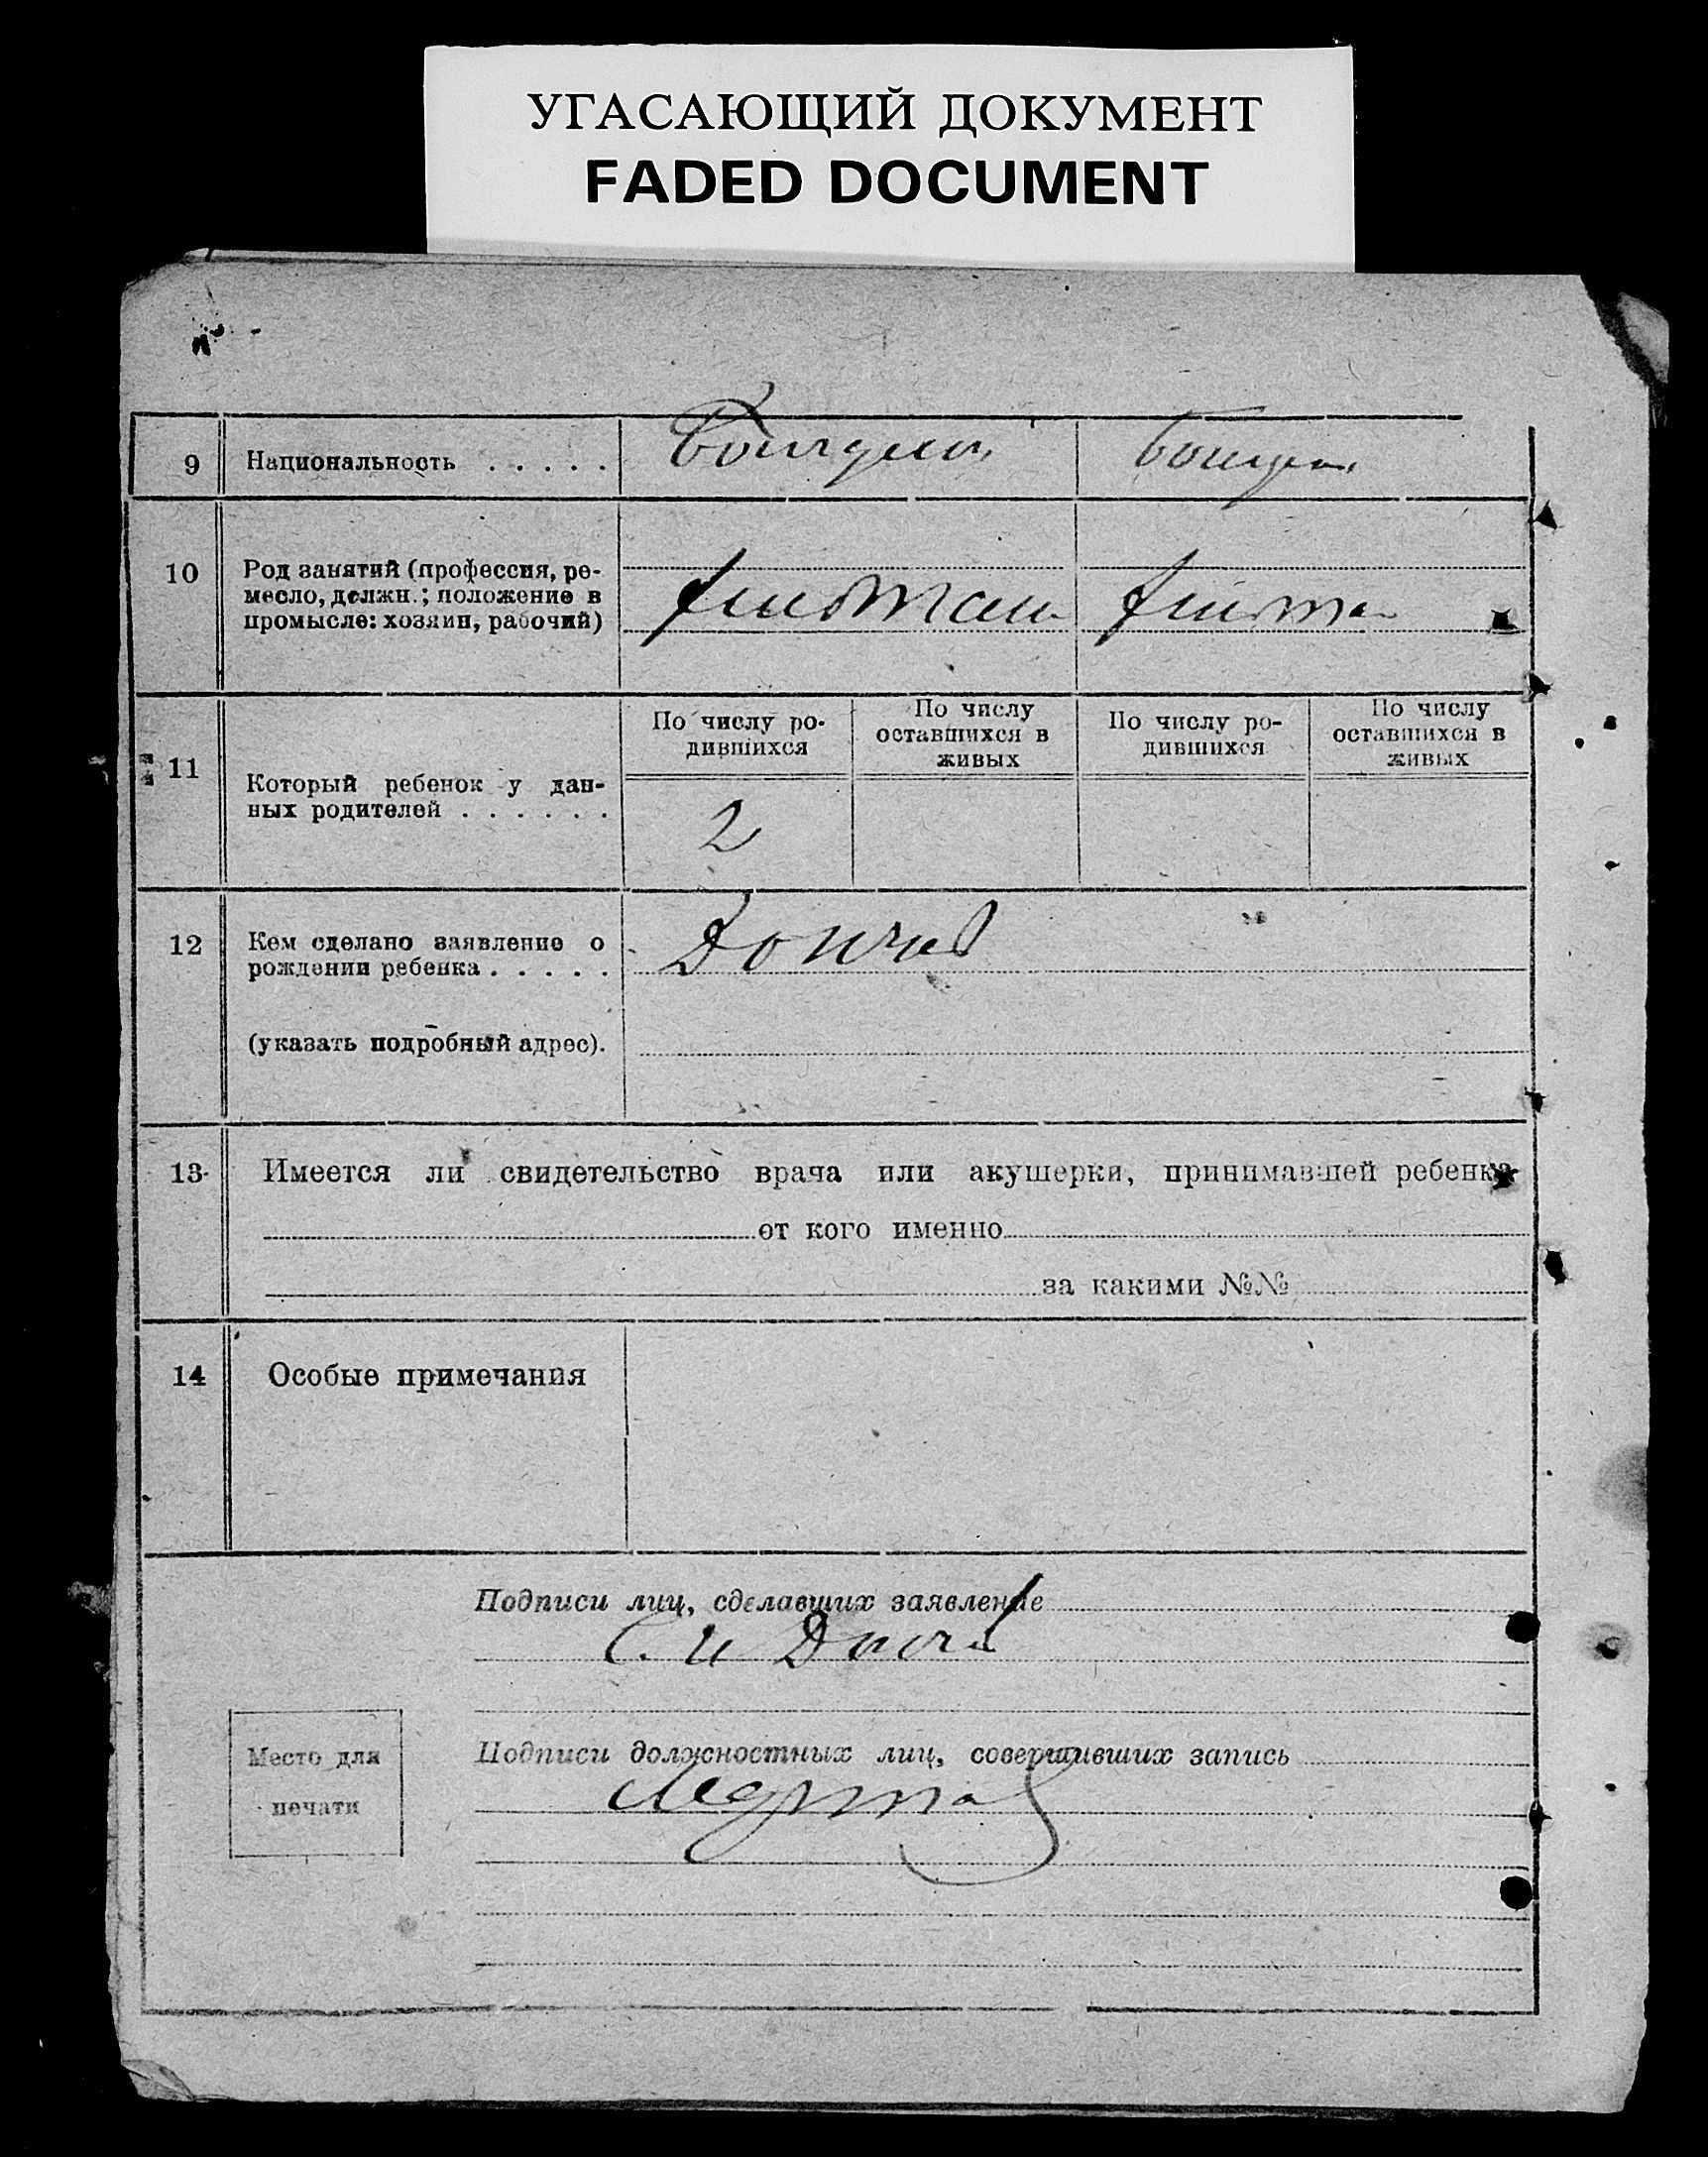 УГАСАЮЩИЙ ДОКУМЕНТ
FADED DOCUMENT
9 Национальность . . . . .
10 Род занятий (профессия, ре-
месло, должн.; положение в
промысле: хозяин, рабочий)
11 Который ребенок у дан-
ных родителей . . . . . .
По числу ро-
дившихся
По числу
оставшихся в
живых
По числу ро-
дившихся
По числу
оставшихся в
живых
2
12 Кем сделано заявление о
рождении ребенка . . . . .
(указать подробный адрес).
13 Имеется ли свидетельство врача или акушерки, принимавшей ребенка
от кого именно
за какими №№
14 Особые примечания
Подписи лиц, сделавших заявление
Место для
печати
Подписи должностных лиц, совершивших запись